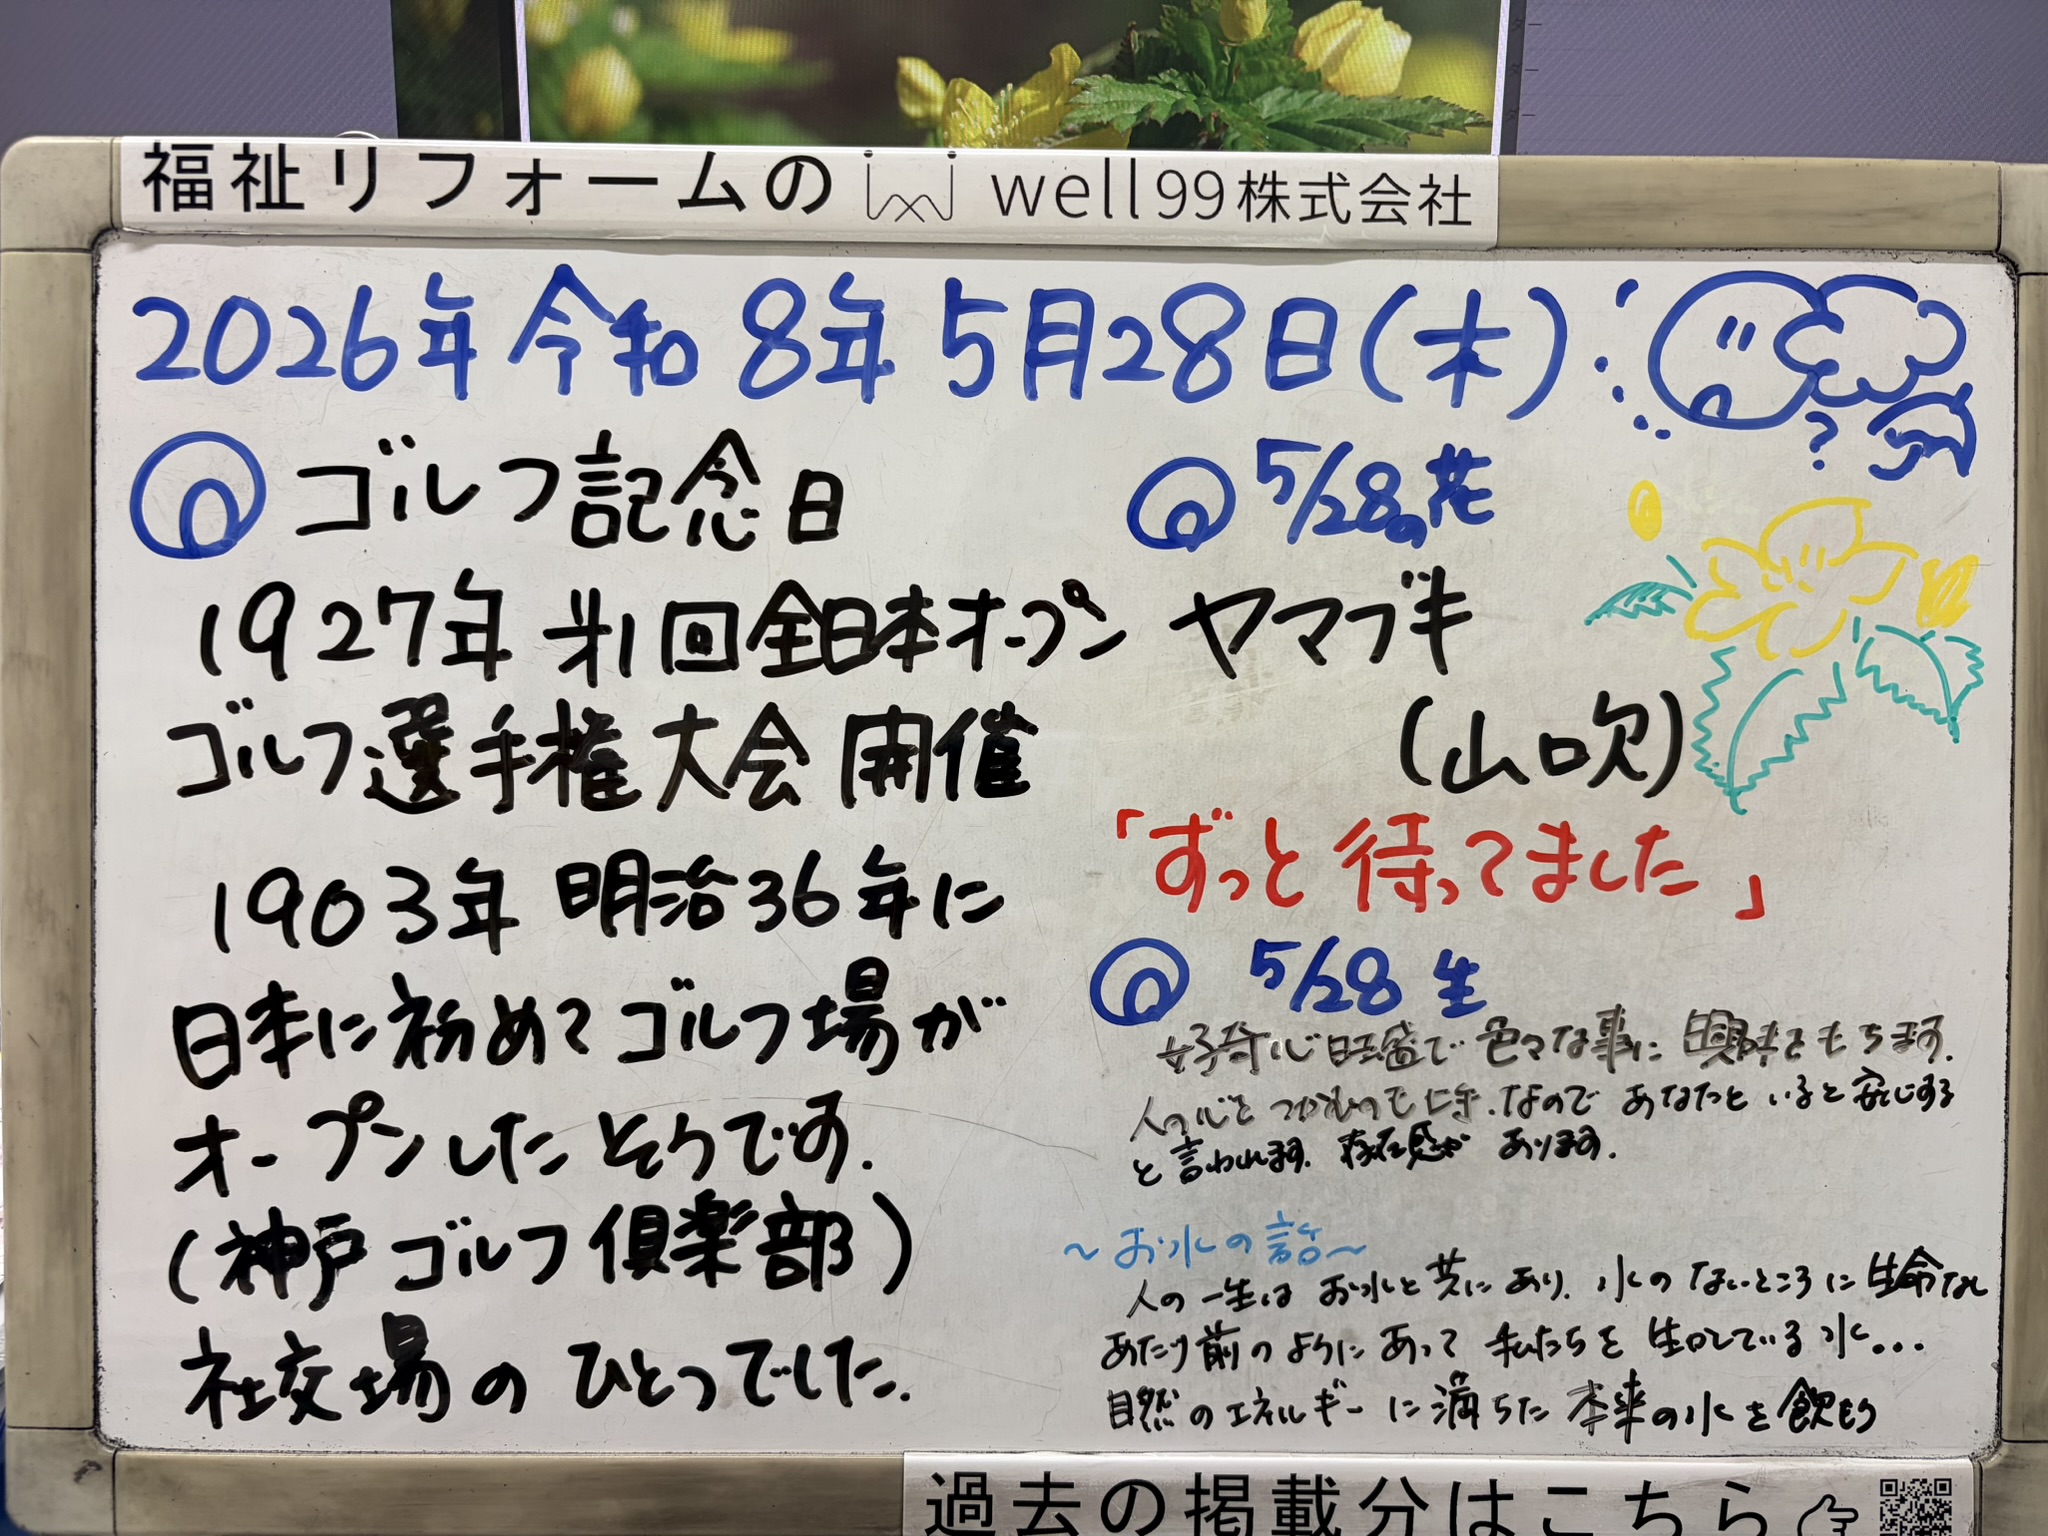 福祉リフォームの well99株式会社
2026年令和8年5月28日(木)
?
ゴルフ記念日
1927年 第1回全日本オープン
ゴルフ選手権大会開催
1903年 明治36年に
日本に初めてゴルフ場が
オープンしたそうです.
(神戸ゴルフ倶楽部)
社交場のひとつでした.
5/28の花
ヤマブキ
(山吹)
「ずっと待ってました」
5/28生
好奇心旺盛で色々な事に興味をもちます.
人の心をつかむのも上手.なのであなたといると安心する
と言われます.存在感があります.
~お水の話~
人の一生はお水と共にあり.水のないところに生命なし
あたり前のようにあって私たちを生かしている水...
自然のエネルギーに満ちた本来の水を飲もう
過去の掲載分はこちら